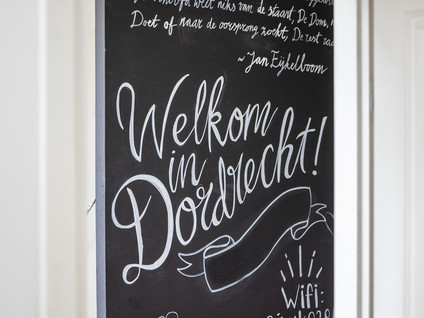 weet niks van de staart, De Dons,
Doet of naar de oorsprong zocht, De rest
~ Jan Eijkelboom
Welkom
in
Dordrecht!
Wifi: